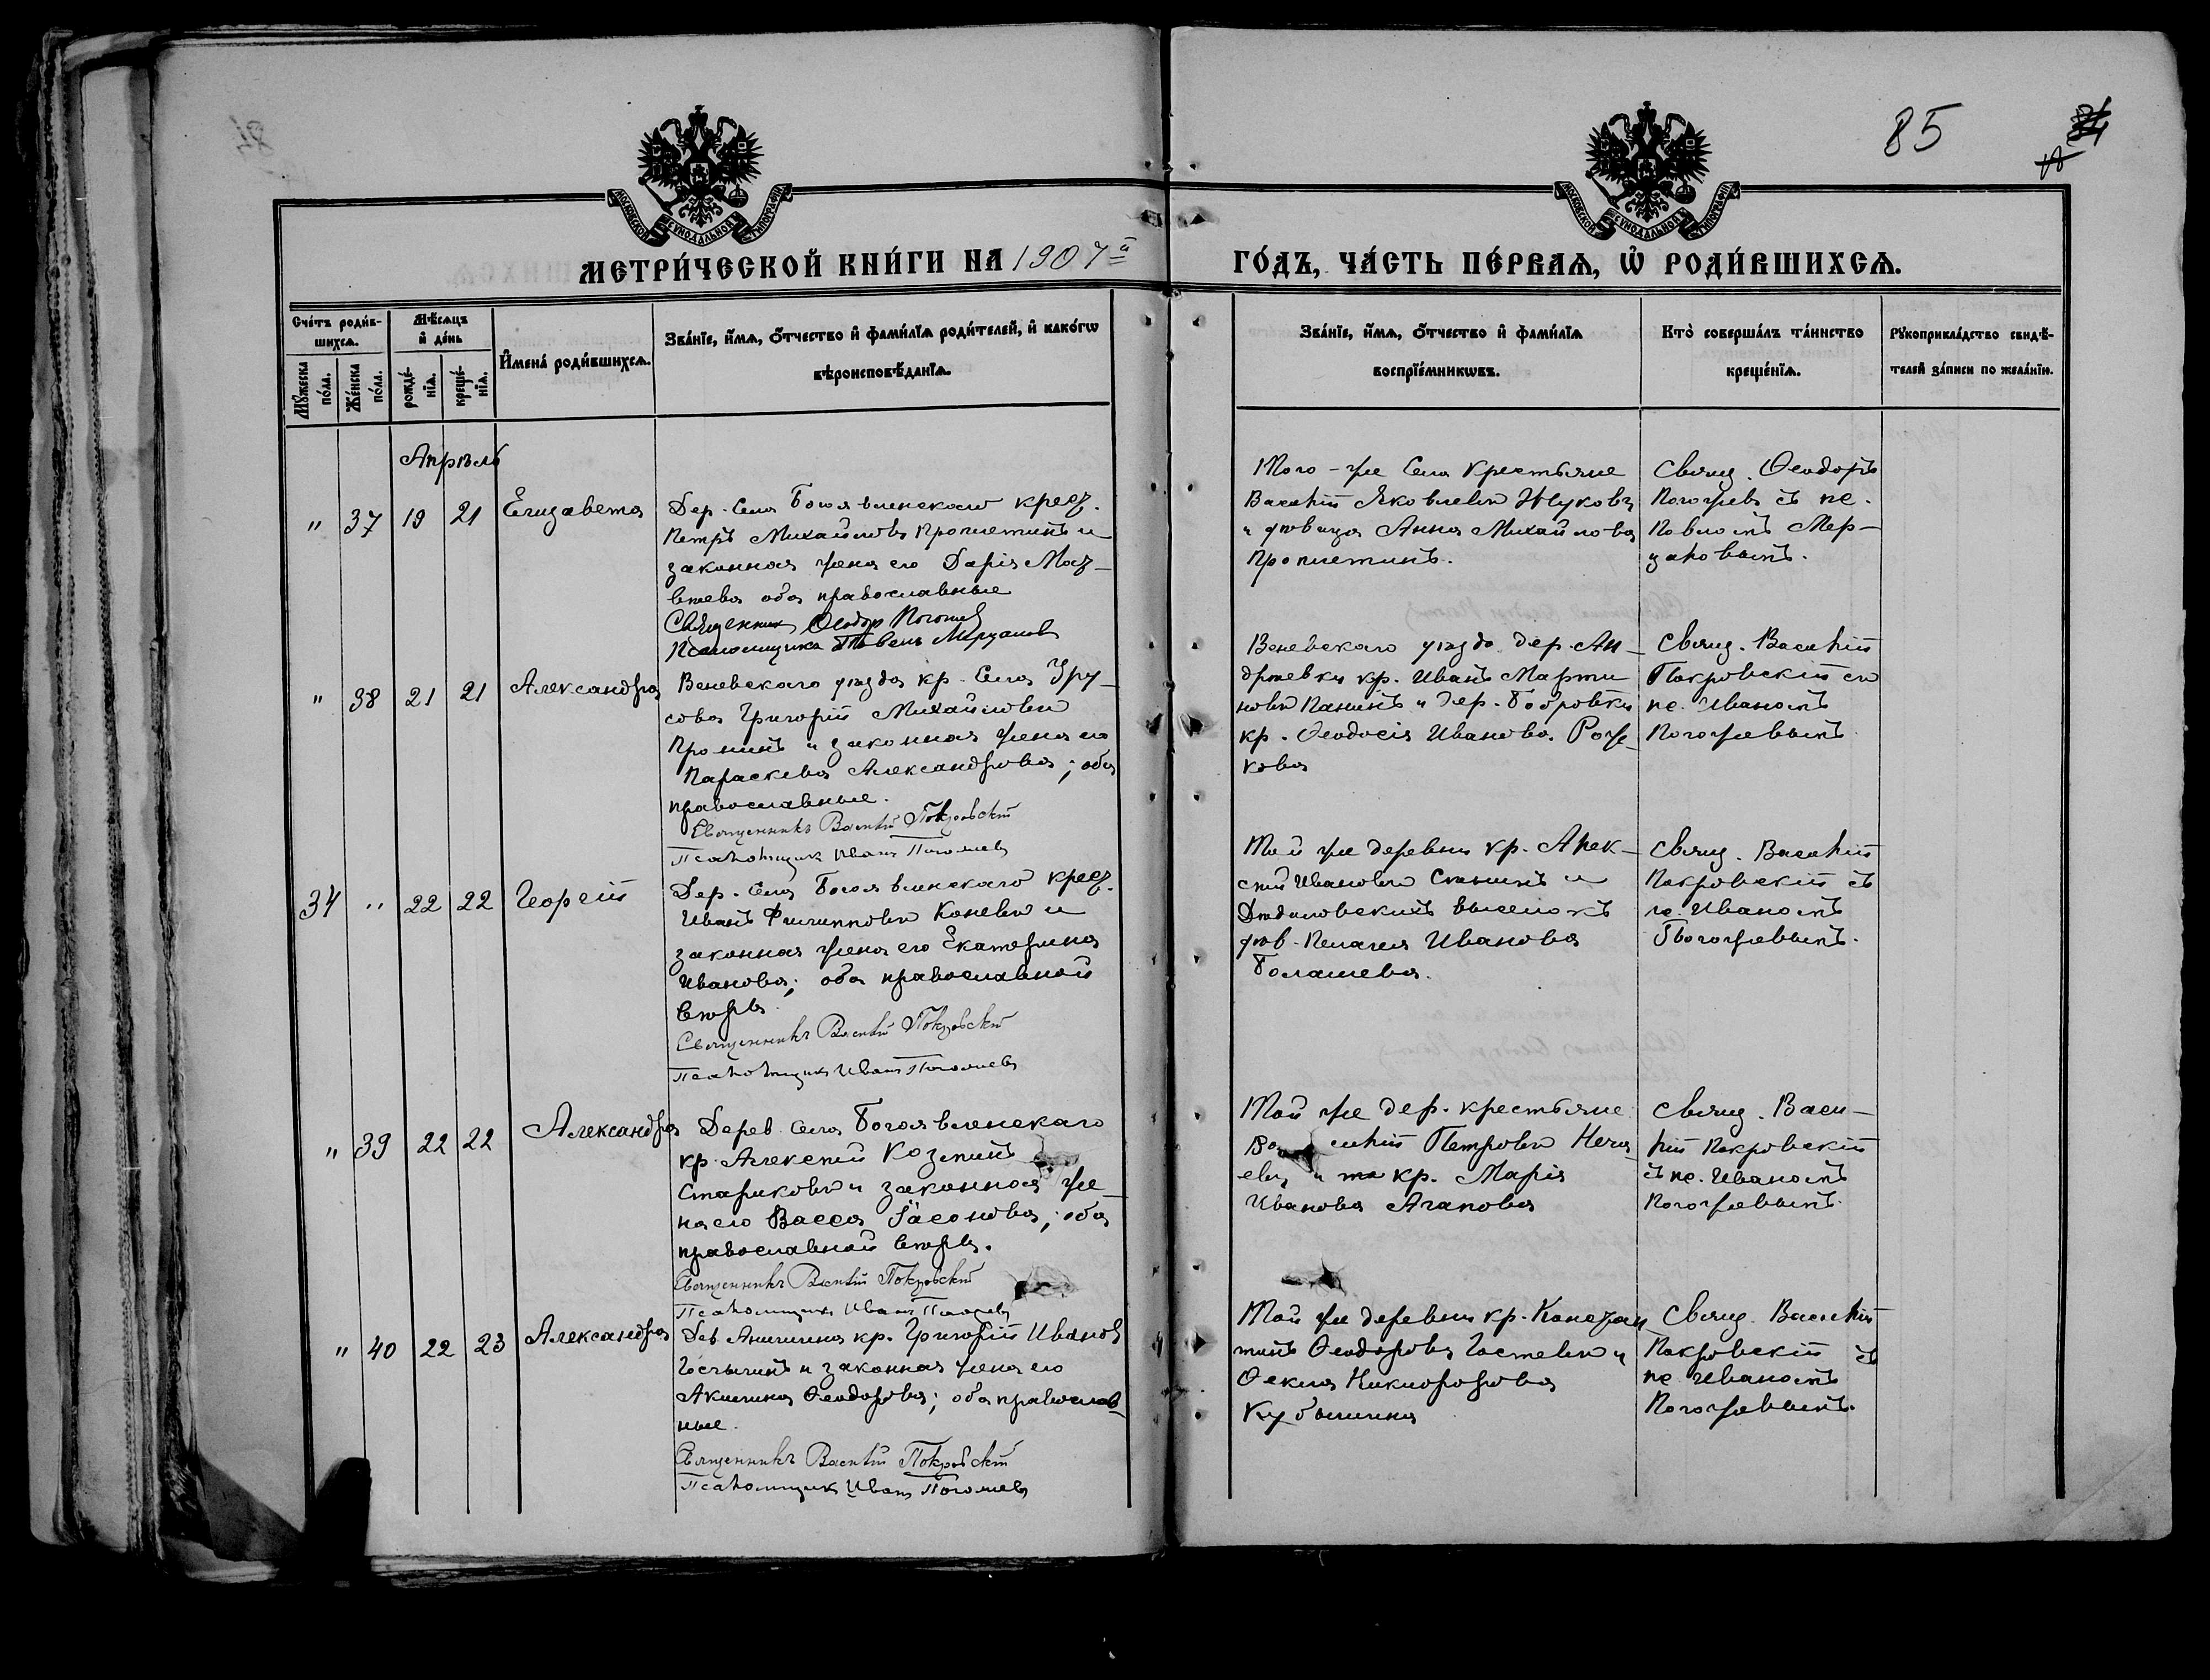 85
84
МОСКОВСКОЙ СУНОДАЛЬНОЙ ТИПОГРАФІИ
МОСКОВСКОЙ СУНОДАЛЬНОЙ ТИПОГРАФІИ
МЕТРИ́ЧЕСКОЙ КНИ́ГИ НА 1907й
ГО́ДЪ, ЧА́СТЬ ПЕ́РВАѦ, Ѡ҆ РОДИ́ВШИХСѦ.
Сче́тъ роди́в-
шихсѧ.
Мꙋ́жеска по́ла.
Же́нска по́ла.
Мѣ́сѧцъ
и҆ де́нь
рожде́-
нїѧ.
креще́-
нїѧ.
И҆мена̀ роди́вшихсѧ.
Зва́нїе, и҆́мѧ, ѻ҆́тчество и҆ фами́лїѧ роди́телей, и҆ како́гѡ
вѣроисповѣ́данїѧ.
Зва́нїе, и҆́мѧ, ѻ҆́тчество и҆ фами́лїѧ
воспрїе́мникѡвъ.
Кто̀ соверша́лъ та́инство
креще́нїѧ.
Рꙋкоприкла́дство свидѣ́-
телей за́писи по жела́нїю.
Апрѣль
" 37 19 21 Елизавета
Дер. Села Богоявленскаго крест.
Петръ Михайловъ Проплетинъ и
законная жена его Дарія Мат-
вѣева оба православные
Священникъ Ѳеодор Погожев
Псаломщикъ Павелъ Мерцалов
Того-же Села крестьяне
Василій Яковлевъ Жуковъ
и дѣвица Анна Михайлова
Проплетинъ.
Свящ. Ѳеодоръ
Погожевъ съ пс.
Павломъ Мер-
цаловымъ.
" 38 21 21 Александра
Веневскаго уѣзда кр. Села Уру-
сова Григорій Михайловъ
Пронинъ и законная жена его
Параскева Александрова; оба
православные.
Священникъ Василій Покровскій
Псаломщикъ Иванъ Погожевъ
Веневскаго уѣзда дер. Ан-
дреевки кр. Иванъ Марти
новъ Панинъ и дер. Бобровки
кр. Ѳеодосія Иванова Рож-
кова
Свящ. Василій
Покровскій съ
пс. Иваномъ
Погожевымъ
34 " 22 22 Георгій
Дер. Села Богоявленскаго крест.
Иванъ Филипповъ Коневъ и
законная жена его Екатерина
Иванова; оба православной
вѣры
Священникъ Василій Покровскій
Псаломщикъ Иванъ Погожевъ
Той же деревни кр. Алек-
сѣй Ивановъ Станинъ и
Дѣдиловскихъ выселокъ
дѣв. Пелагея Иванова
Балашева.
Свящ. Василій
Покровскій съ
пс. Иваномъ
Погожевымъ.
" 39 22 22 Александра
Дерев. Села Богоявленскаго
кр. Алексѣй Козминъ
Стариковъ и законная же-
на его Васса Іасонова; оба
православной вѣры.
Священникъ Василій Покровскій
Псаломщикъ Иванъ Погожевъ
Той же дер. крестьяне
Василій Петровъ Неча
евъ и кр. Марія
Иванова Агапова
Свящ. Васи-
лій Покровскій
съ пс. Иваномъ
Погожевымъ.
" 40 22 23 Александра
Дев Анишина кр. Григорій Иванов
и законная жена его
Акилина Ѳеодорова; оба православ
ные.
Священникъ Василій Покровскій
Псаломщикъ Иванъ Погожевъ
Той же деревни кр. Констан
тинъ Ѳеодоровъ Гостевъ и
Ѳекла Никифорова
Кубышина
Свящ. Василій
Покровскій съ
пс. Иваномъ
Погожевымъ.